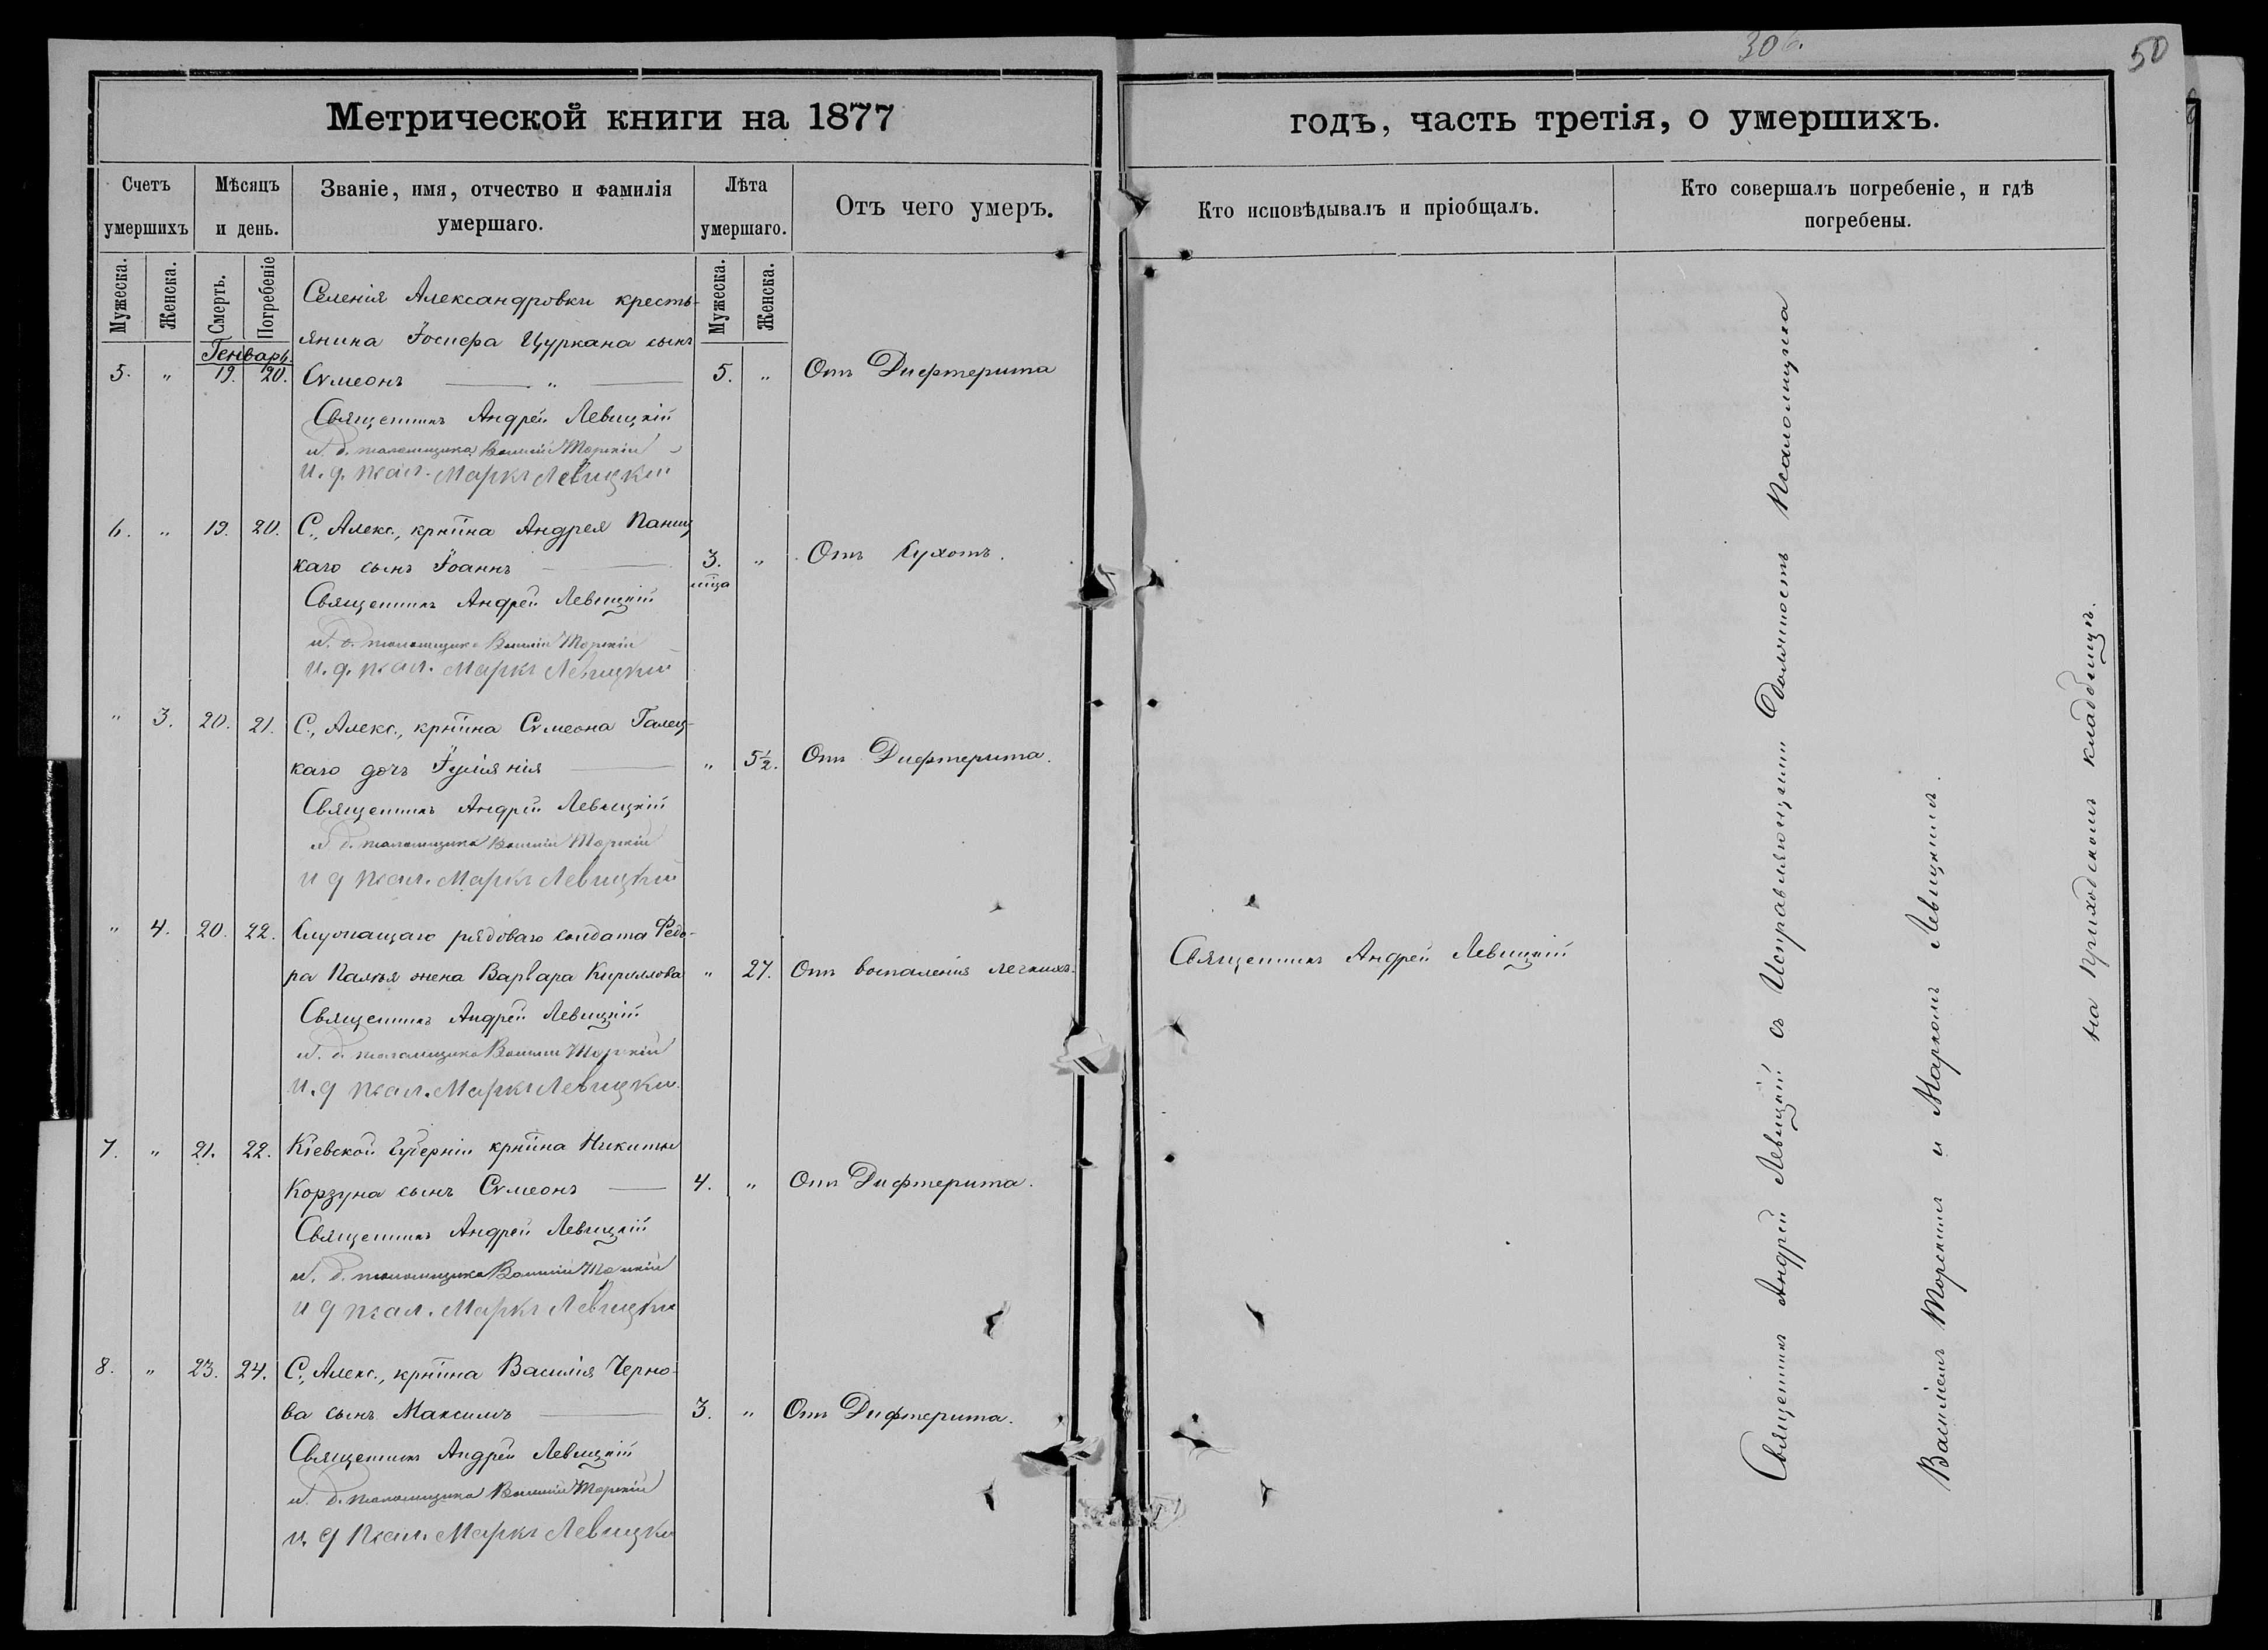 306.
50
Метрической книги на 1877
годъ, часть третія, о умершихъ.
Счетъ умершихъ
Мѣсяцъ и день.
Званіе, имя, отчество и фамилія умершаго.
Лѣта умершаго.
Отъ чего умеръ.
Кто исповѣдывалъ и пріобщалъ.
Кто совершалъ погребеніе, и гдѣ погребены.
Мужеска.
Женска.
Смерть.
Погребеніе
Мужеска.
Женска.
Генварь.
Селенія Александровки кресть-
янина Іосифа Цуркана сынъ
5. " 19. 20. Сѵмеонъ — " — 5. " Отъ Дифтерита
Священникъ Андрей Левицкій
и. д. псаломщика Василій Торскій
и. д. псал. Маркъ Левицкій
6. " 19. 20. С., Алекс., крнина Андрея Паниц
каго сынъ Іоаннъ — 3. " Отъ Сухотъ.
мца
Священникъ Андрей Левицкій
и. д. псаломщика Василій Торскій
и. д. псал. Маркъ Левицкій
" 3. 20. 21. С., Алекс., крнина Сѵмеона Галец-
каго дочь Іуліянія — " 5½. Отъ Дифтерита.
Священникъ Андрей Левицкій
и. д. псаломщика Василій Торскій
и д псал. Маркъ Левицкій
" 4. 20. 22. Служащаго рядоваго солдата Федо-
ра Палія жена Варвара Кириллова " 27. Отъ воспаленія легкихъ. Священникъ Андрей Левицкій
Священникъ Андрей Левицкій
и. д. псаломщика Василій Торскій
и. д псал. Маркъ Левицкій
7. " 21. 22. Кіевской Губерніи крнина Никиты
Корзуна сынъ Сѵмеонъ — 4. " Отъ Дифтерита.
Священникъ Андрей Левицкій
и. д. псаломщика Василій Торскій
и д псал. Маркъ Левицкій
8. " 23. 24. С., Алекс., крнина Василія Черно-
ва сынъ Максимъ — 3. " Отъ Дифтерита.
Священникъ Андрей Левицкій
и. д. псаломщика Василій Торскій
и. д псал. Маркъ Левицкій
Священникъ Андрей Левицкій съ Исправляющими Должность Псаломщика
Василіемъ Торскимъ и Маркомъ Левицкимъ.
на приходскомъ кладбищѣ.